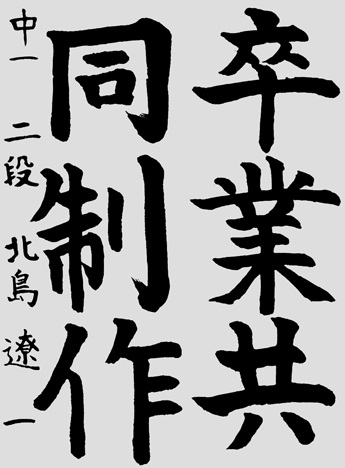 卒業共
同制作
中一 二段 北島 遼一